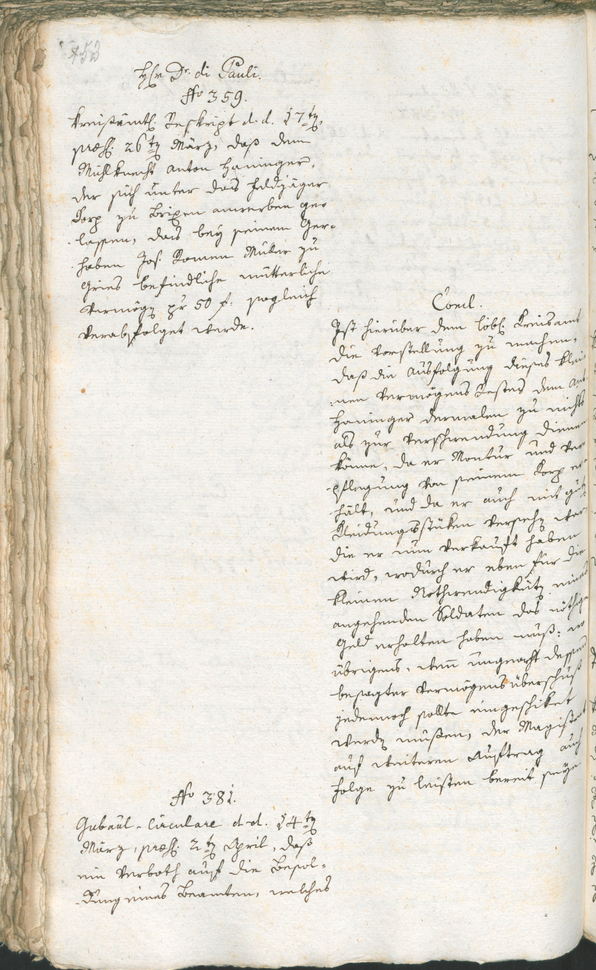 453
H&hellip;r Dr. di Pauli.
No 359.
Kreisämtl. Reskript d. d. 17ty
præs. 26ty März, daß dem
Mühlknecht Anton Haninger,
der sich unter das Feldjäger
Corp zu Brixen anwerben ge-
lassen, das bey seinem Ger-
haben Jos. Romen Müler zu
Gries befindliche mütterliche
Vermögen pr 50 f. sogleich
verabfolget werde.
Concl.
Ist hierüber dem löbl. Kreisamt
die Vorstellung zu machen,
daß die Ausfolgung dieses klei-
nen Vermögens Restes dem Ant.
Haninger dermalen zu nichts
als zur Verschwendung dienen
könne, da er Montur und Ver-
pflegung von seinem Korp er-
hält, und da er auch mit gut
Kleidungsstüken versehen war
die er nun verkauft haben
wird, wodurch er eben für die
kleinen Nothwendigkeiten eines
angehenden Soldaten das nöthige
Geld erhalten haben muß; wo
übrigens, wenn ungeacht dessen
besagter Vermögensüberschuß
jedennoch sollte eingeschiket
werden müßen, der Magistrat
auf weiteren Auftrag auch
Folge zu leisten bereit seye
No 381.
Gubial-Circulare d. d. 14ty
März, præs. 2ty April, daß
ein Verboth auf die Besol-
dung eines Beamten, welches